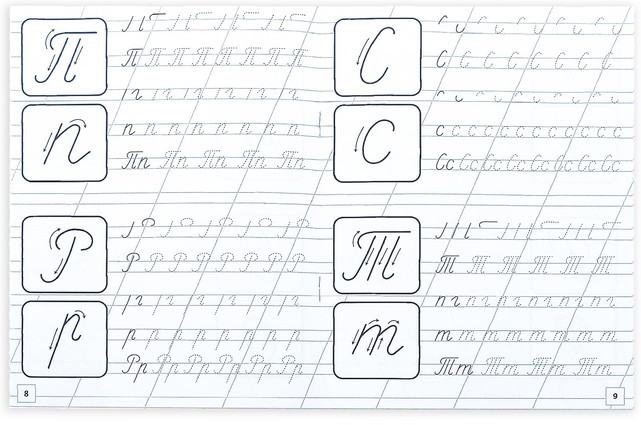 П
П П П П П П П П
п
п п п п п п п п
Пп Пп Пп Пп Пп
Р
Р Р Р Р Р Р Р Р
р
р р р р р р р р
Рр Рр Рр Рр Рр Рр
8
С
С С С С С С С С
с
с с с с с с с с с с с с
Сс Сс Сс Сс Сс Сс Сс Сс
Т
Т Т Т Т Т Т
т
т т т т т т т т т
Тт Тт Тт Тт
9